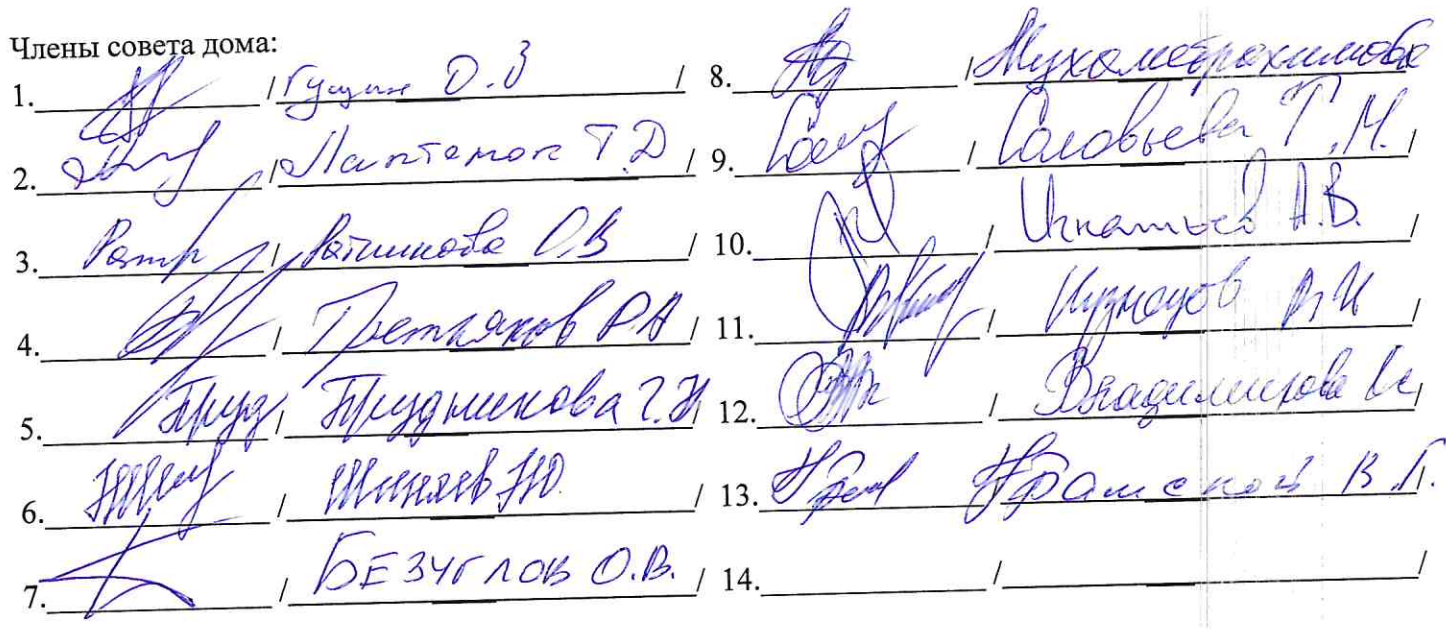 Члены совета дома:
1. / Гущин О.З /
2. / Лаптенок Т Д /
3. / Ратникова О.В /
4. / Третьяков Р А
5. Пруд / Прудникова Г.Н
6. / Шиняев
7. / БЕЗУГЛОВ О.В. /
8. / Мухаметрахимова
9. / Соловьева Т.М. /
10. / Игнатьев А.В. /
11. / Кузнецов В И /
12. / Владимирова
13. В.Г.
14. / /